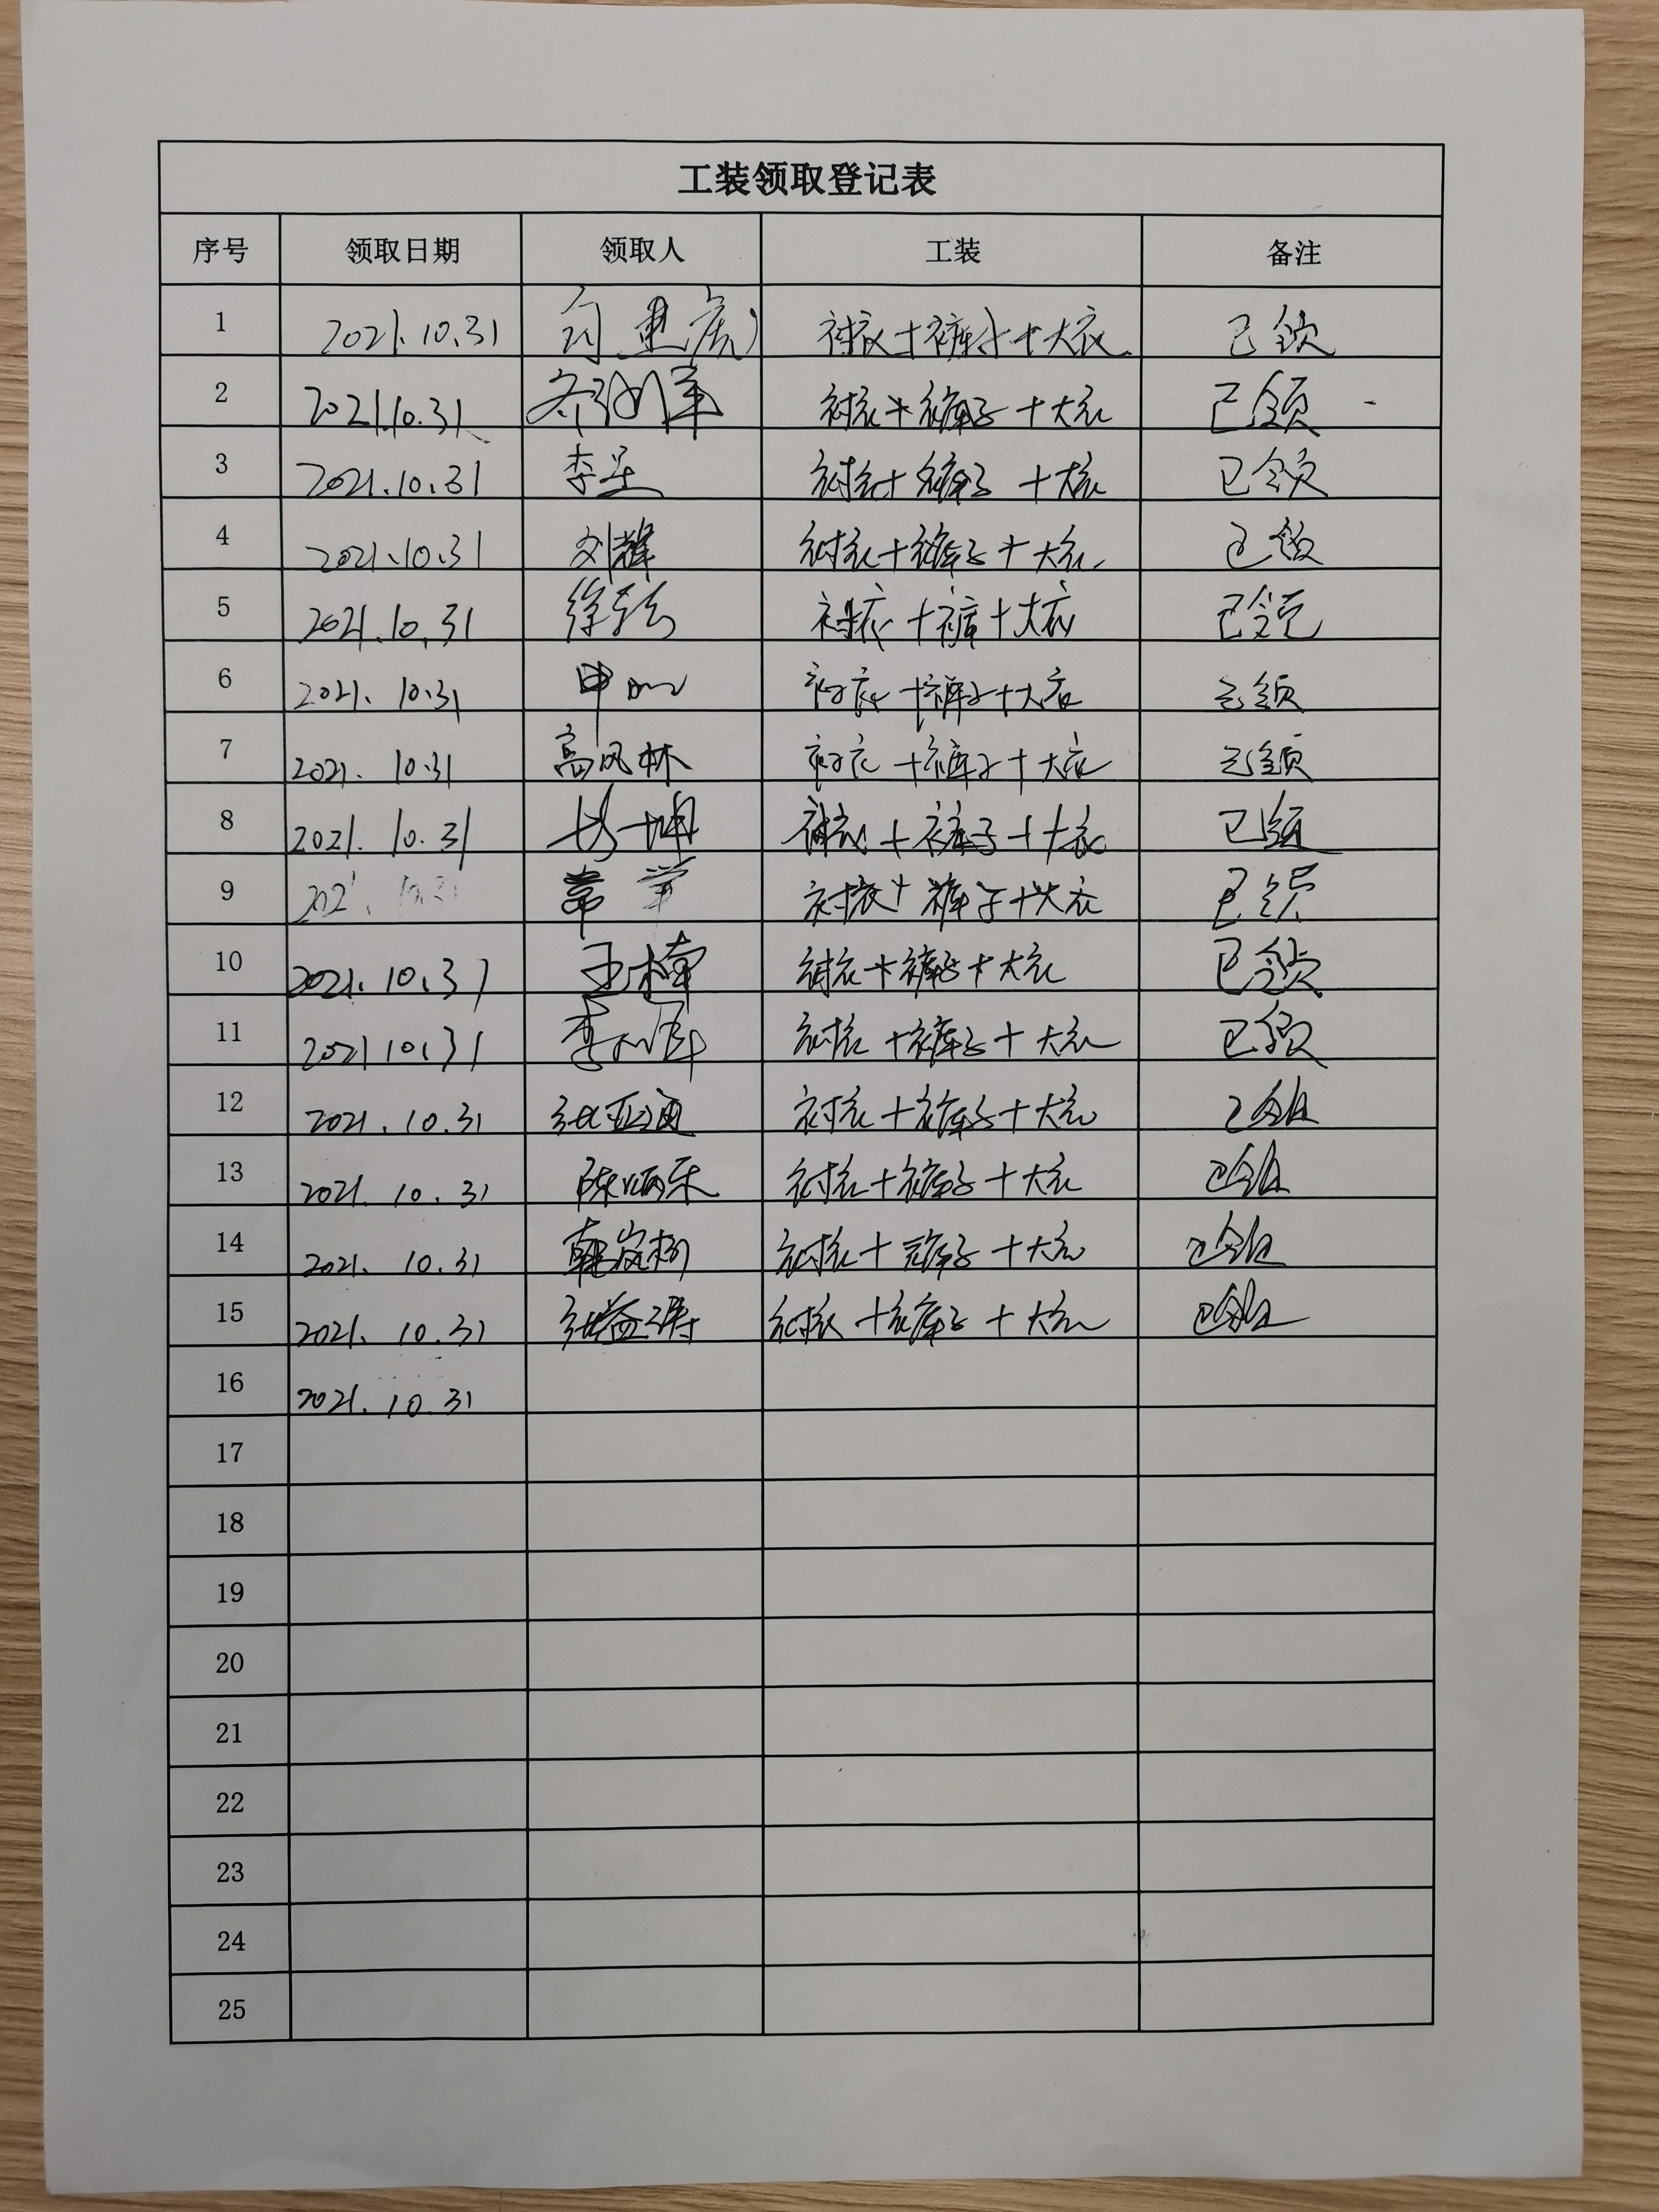 工装领取登记表
序号 领取日期 领取人 工装 备注
1 2021.10.31 衬衣+裤子+大衣 已领
2 2021.10.31 衬衣+裤子+大衣 已领
3 2021.10.31 李星 衬衣+裤子+大衣 已领
4 2021.10.31 刘辉 衬衣+裤子+大衣 已领
5 2021.10.31 衬衣+裤+大衣 已领
6 2021.10.31 衬衣+裤子+大衣 已领
7 2021.10.31 高凤林 衬衣+裤子+大衣 已领
8 2021.10.31 衬衣+裤子+大衣 已领
9 2021.10.31 衬衣+裤子+大衣 已领
10 2021.10.31 王楠 衬衣+裤子+大衣 已领
11 2021.10.31 衬衣+裤子+大衣 已领
12 2021.10.31 张亚通 衬衣+裤子+大衣 已领
13 2021.10.31 陈炳乐 衬衣+裤子+大衣 已领
14 2021.10.31 衬衣+裤子+大衣 已领
15 2021.10.31 张益涛 衬衣+裤子+大衣 已领
16 2021.10.31
17
18
19
20
21
22
23
24
25